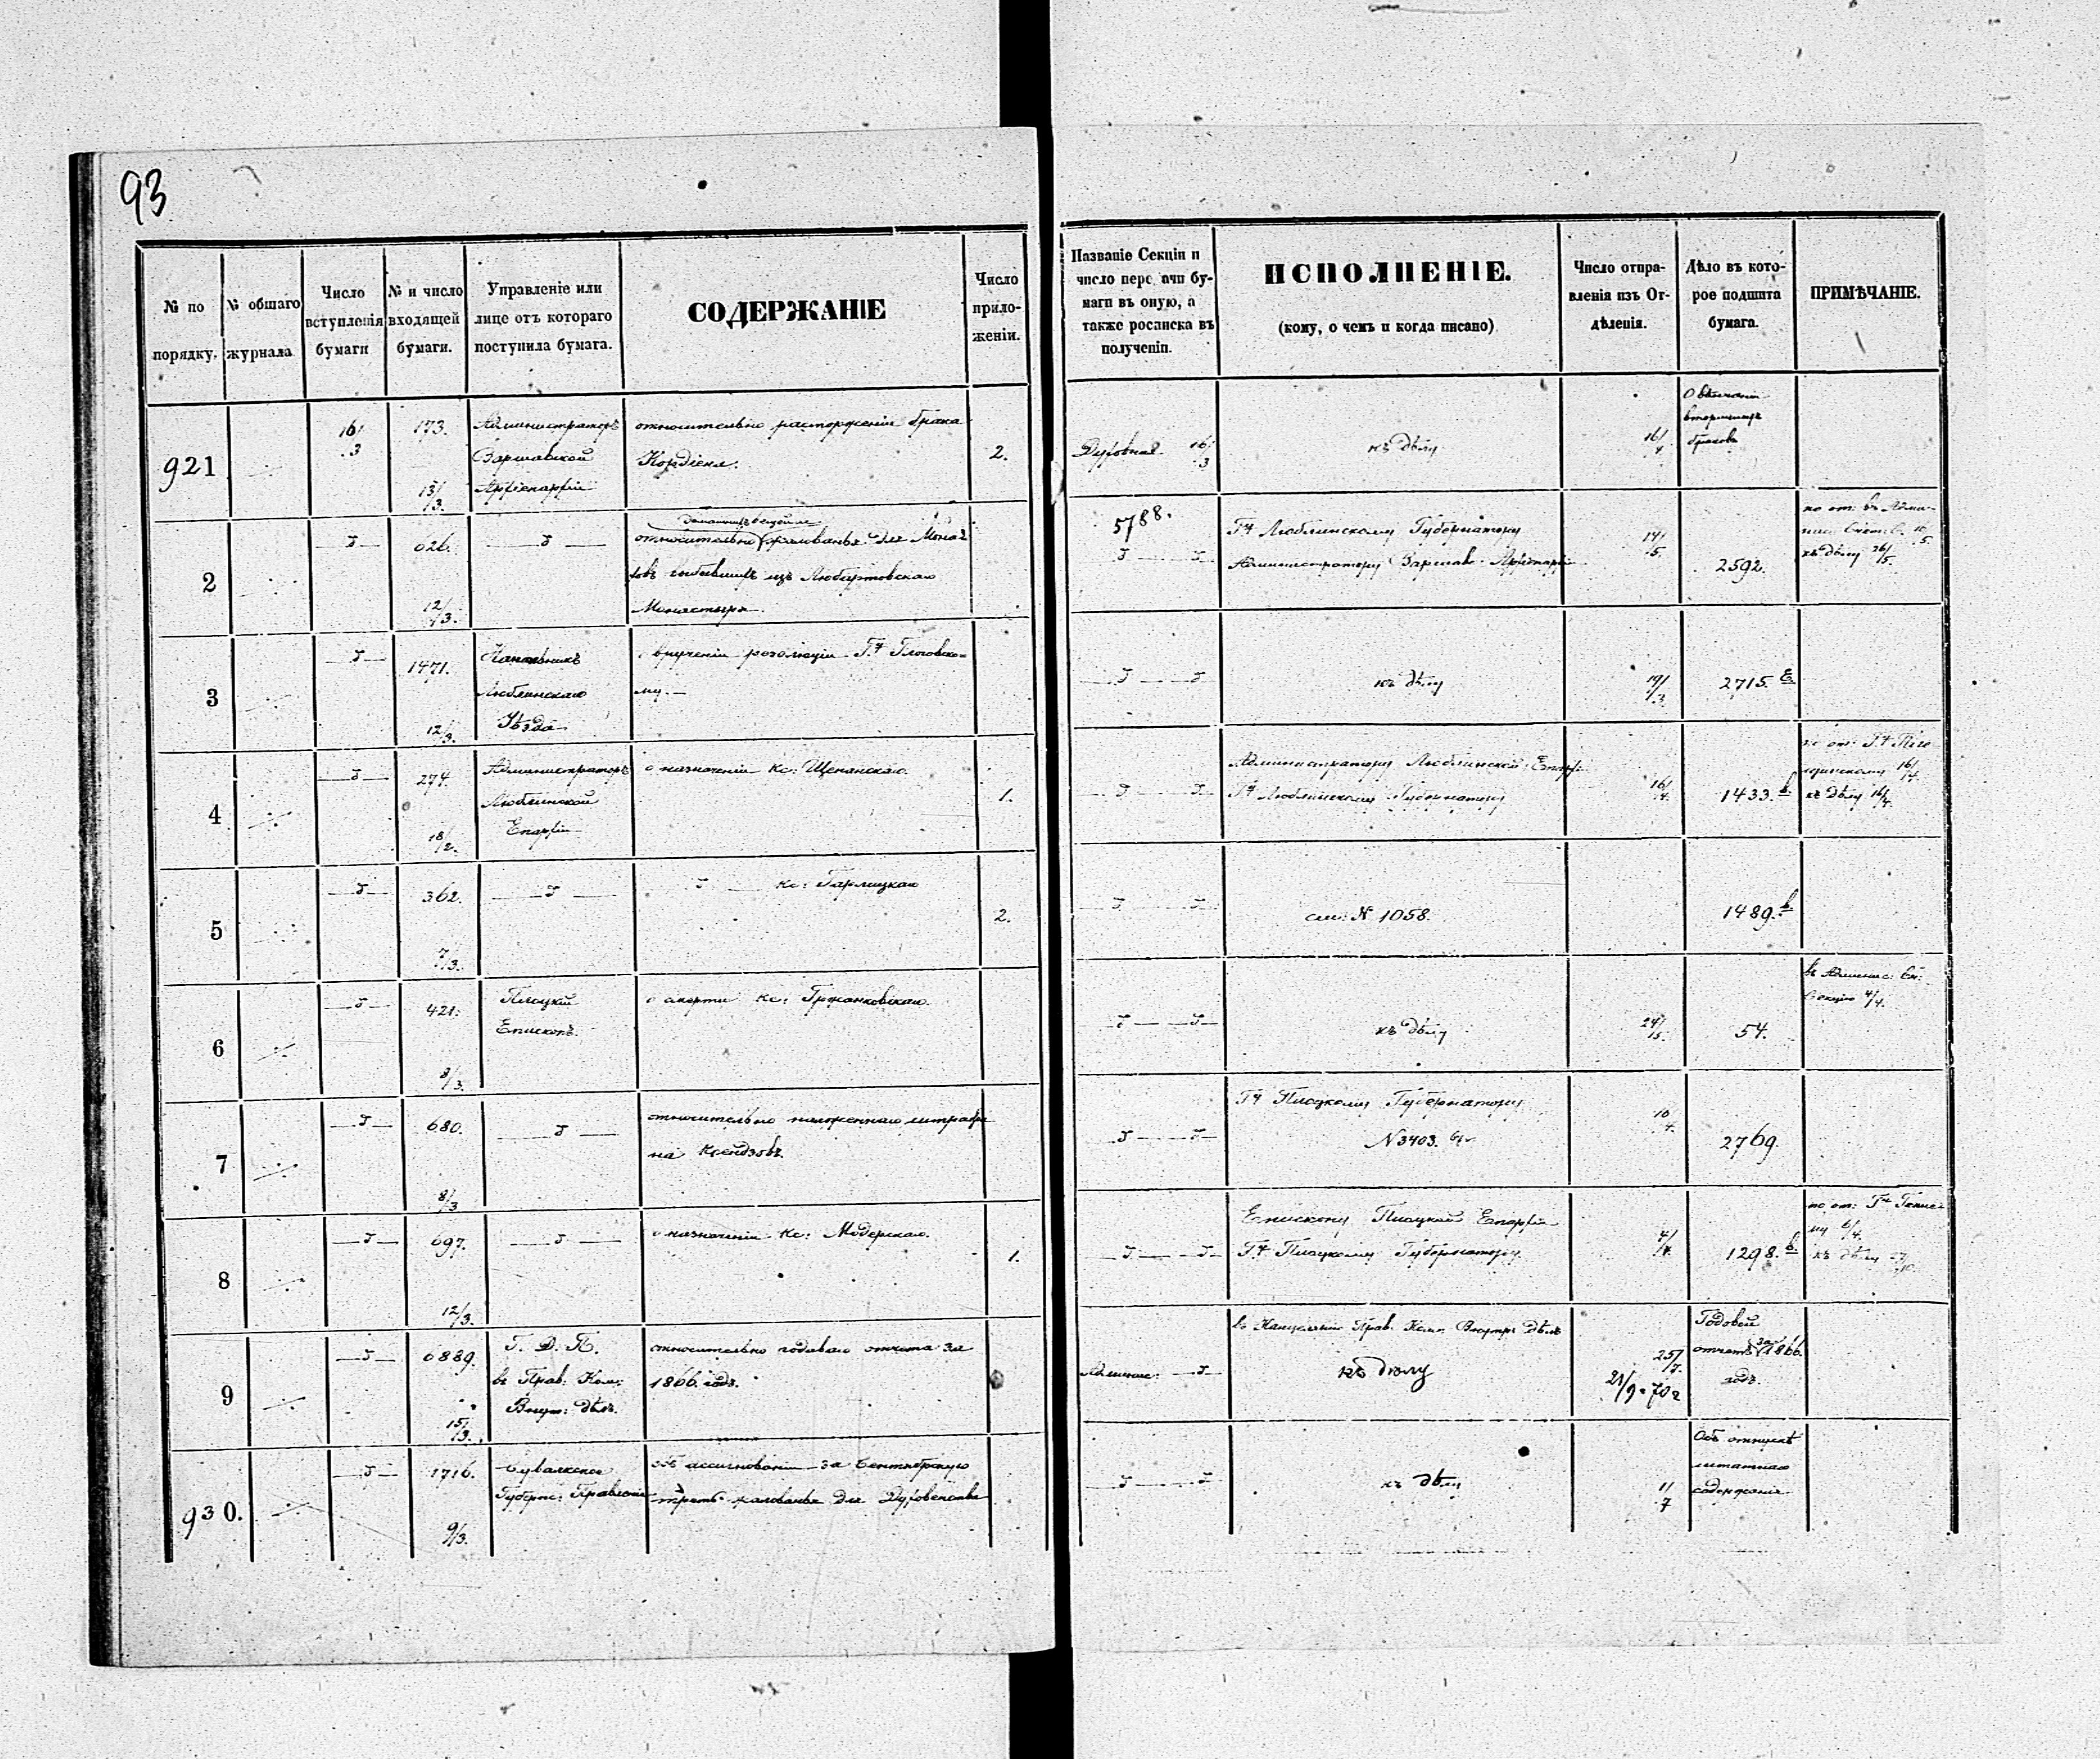 93
№ по порядку.
№ общаго журнала
Число вступленія бумаги
№ и число входящей бумаги.
Управленіе или лице отъ котораго поступила бумага.
СОДЕРЖАНІЕ
Число приложеніи.
Названіе Секціи и число перс ачи бумаги въ оную, а также росписка въ полученіи.
ИСПОЛНЕНІЕ.
(кому, о чемъ и когда писано)
Число отправленія изъ Отдѣленія.
Дѣло въ которое подшита бумага.
ПРИМѢЧАНІЕ.
921
16/3
173.
13/3.
Администраторъ
Варшавской
Архіепархіи
относительно расторженія брака
2.
Духовная 16/3
къ дѣлу
16/4
О
вторичныхъ
браковъ
2
026.
12/3.
относительно жалованья для Мона
ховъ выбывшихъ изъ Любартовскаго
Монастыря.
5788.
Гну Люблинскому Губернатору
Администратору Варшав. Архіепархіи
14/5
2592.
къ дѣлу 26/5.
3
1471.
12/3.
Начальникъ
Люблинскаго
Уѣзда
о врученіи резолюціи Гну
му.
къ дѣлу
19/3
2715.
4
274.
18/2.
Администраторъ
Люблинской
Епархіи
о назначеніи Кс: Щепанскаго.
1.
Администратору Люблинской Епархіи
Гну Люблинскому Губернатору
16/4.
1433.
къ дѣлу 16/4.
5
362.
7/3.
Кс: Гарлицкаго
2.
см: № 1058.
1489.
6
421.
8/3.
Плоцкій
Епископъ.
о смерти Кс: Гржанковскаго.
къ дѣлу
24/5.
54.
въ Админис:
Секцію 4/4.
7
680.
8/3
относительно наложеннаго штрафа
на Ксендзовъ.
Гну Плоцкому Губернатору
№ 3403.
10/4.
2769.
8
697.
12/3.
о назначеніи Кс: Модерскаго.
1.
Епископу Плоцкой Епархіи
Гну Плоцкому Губернатору.
4/4.
1298.
къ дѣлу
9
6889.
15/3.
Г. Д. П.
въ Прав: Ком:
Внут: дѣлъ.
относительно годоваго отчета за
1866. годъ.
Админис:
въ Канцелярію Прав. Ком. Внутр. дѣлъ
къ дѣлу
25/7.
21/9 70 г
Годовой
отчетъ за 1866.
годъ.
930.
1716.
9/3.
Сувалкское
Губерн: Правленіе
объ ассигнованіи за Сентябрьскую
треть жалованья для Духовенства
къ дѣлу
11/7
Объ отпускѣ
штатнаго
содержанія